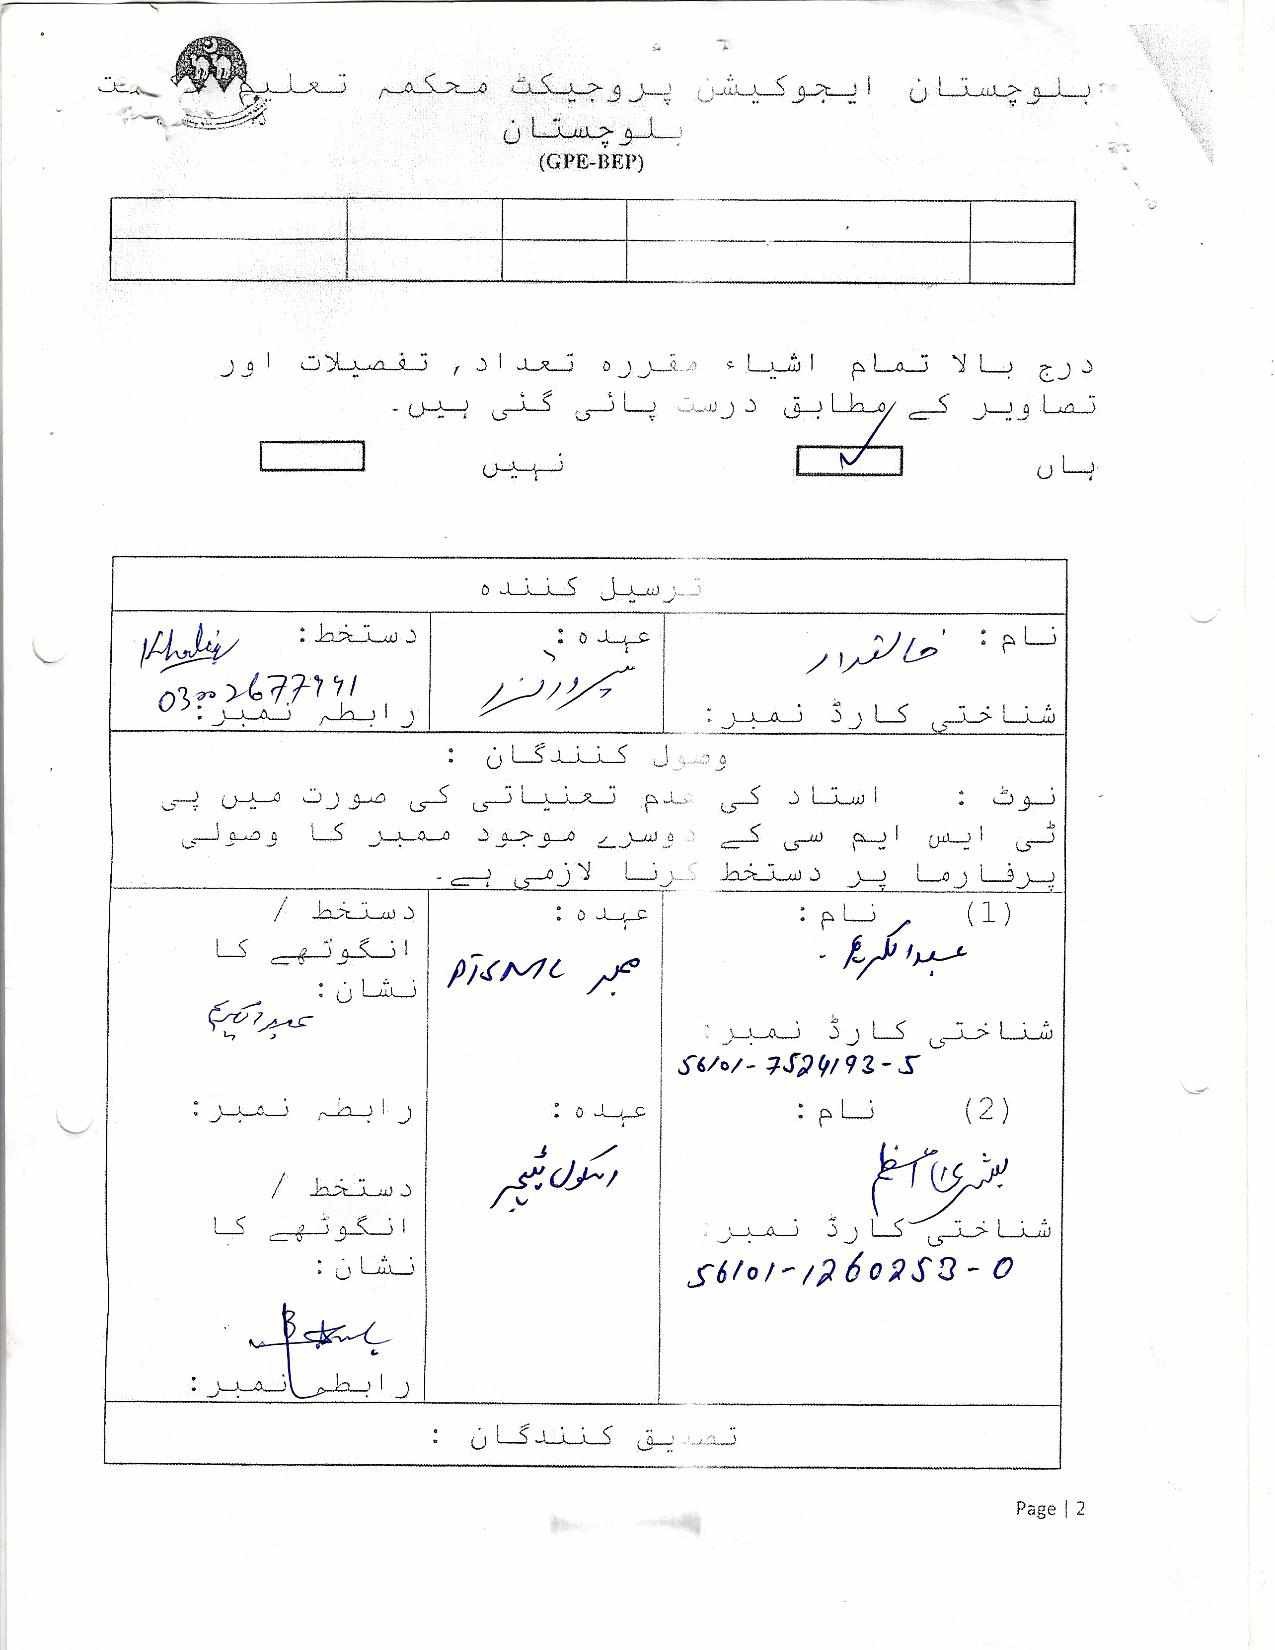 بلوچستان ایجوکیشن پروجیکٹ محکمہ تعلیم
بلوچستان
(GPE-BEP)
درج بالا تمام اشیاء مقررہ تعداد, تفصیلات اور
تصاویر کے مطابق درست پائی گئی ہیں۔
ہاں نہیں
ترسیل کنندہ
نام: عہدہ: دستخط:
Khaliq
شناختی کارڈ نمبر: رابطہ نمبر:
وصول کنندگان :
نوٹ : استاد کی عدم تعنیاتی کی صورت میں پی
ٹی ایس ایم سی کے دوسرے موجود ممبر کا وصولی
پرفارما پر دستخط کرنا لازمی ہے۔
(1) نام: عہدہ: دستخط /
انگوٹھے کا
عبدالکریم ممبر PTSMC
نشان:
عبدالکریم
شناختی کارڈ نمبر:
56101-7524193-5
(2) نام: عہدہ: رابطہ نمبر:
بشریٰ اعظم سکول ٹیچر
دستخط /
شناختی کارڈ نمبر: انگوٹھے کا
56101-1260253-0 نشان:
رابطہ نمبر:
تصدیق کنندگان :
Page | 2